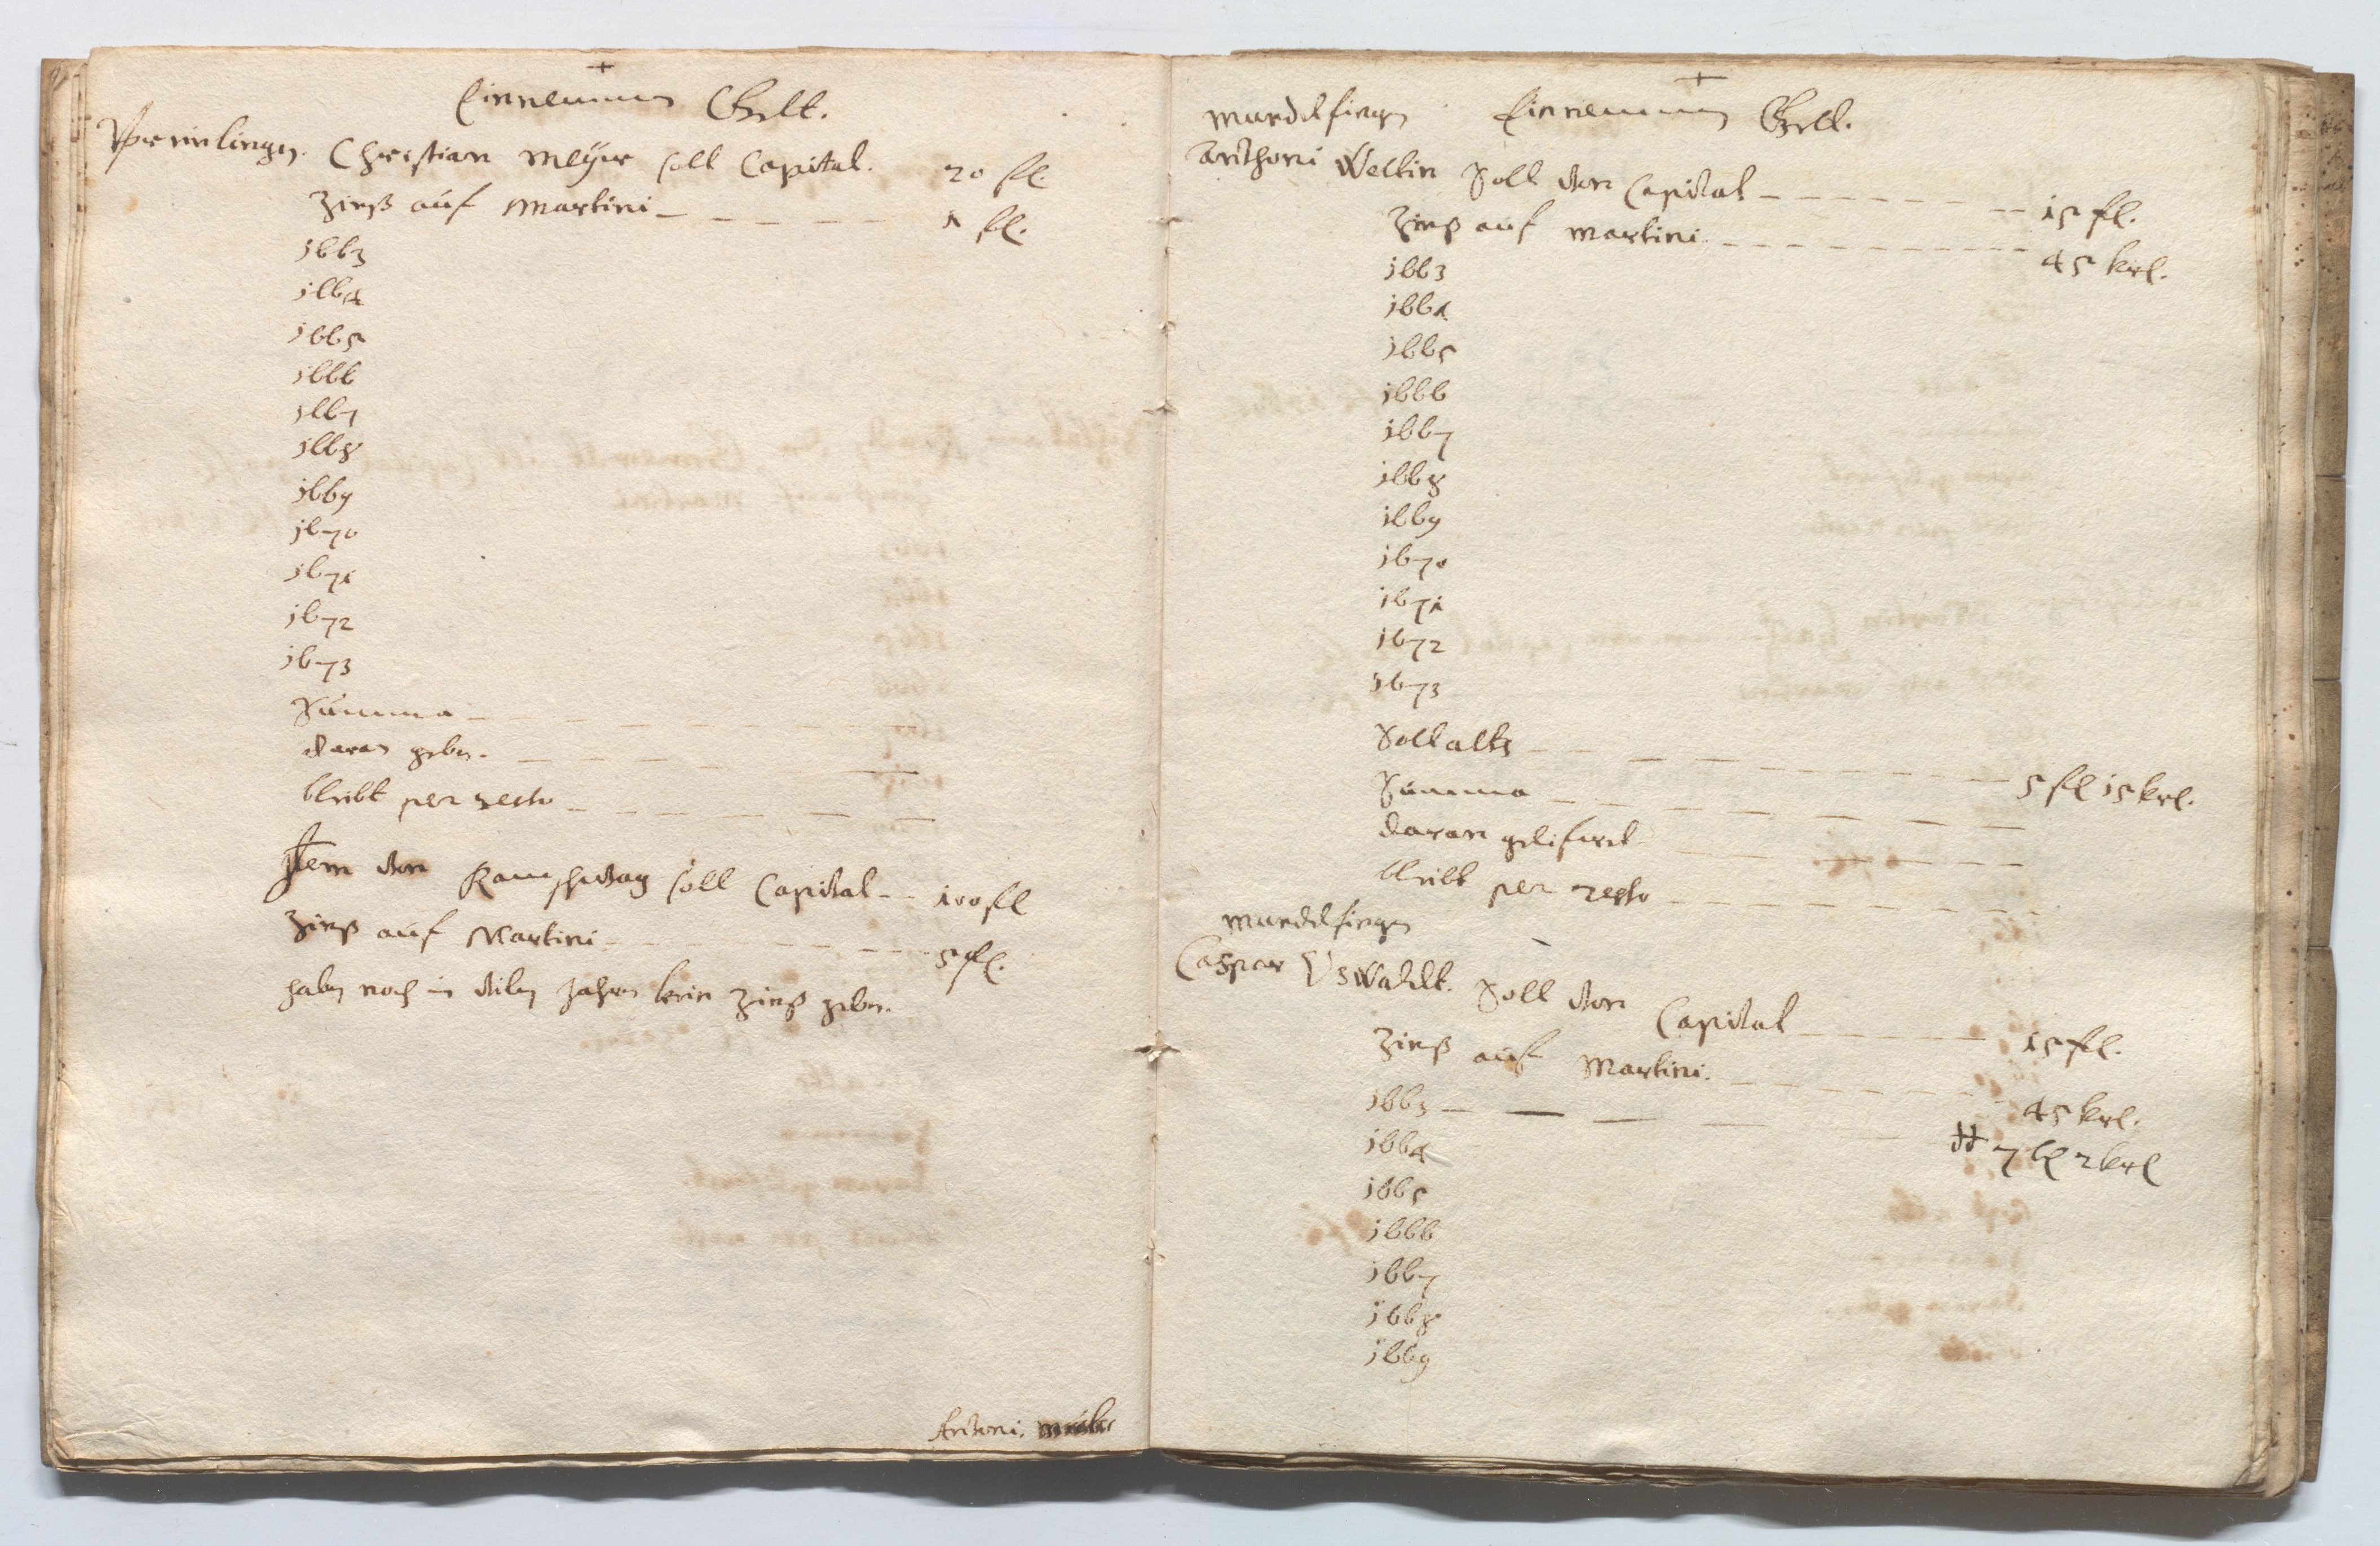 +
Einnemmen Gelt.
Christian Meÿer soll Capital. 20 fl.
Zinß auf Martini 1 fl.
1663
1664
1665
1666
1667
1668
1669
1670
1671
1672
1673
Summa
daran geben.
bleibt per resto
Jtem von soll Capital 100 fl
Zinß auf Martini 5 fl.
haben noch in vilen Jahren kein Zinß geben.
Antoni.
+
Einnemmen Gelt.
Anthoni Weltin Soll von Capital 15 fl.
Zinß auf martini 45 krl.
1663
1664
1665
1666
1667
1668
1669
1670
1671
1672
1673
Solt alts 5 fl 15 krl.
Summa
daran gelifert
bleibt per resto
Caspar Oswaldt. Soll von Capital 15 fl.
Zinß auf Martini. 45 krl.
1663 dt 7 2 krl
1664
1665
1666
1667
1668
1669